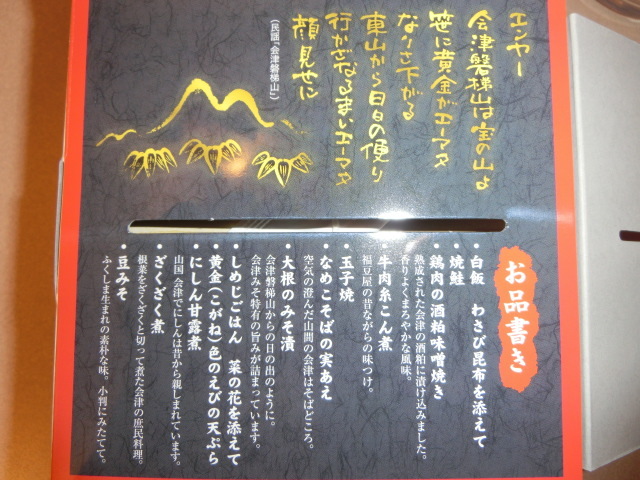 エンヤー
会津磐梯山は宝の山よ
笹に黄金がエーマタ
なりさ下がる
東山から日日の便り
行かざなるまいエーマタ
顔見せに
(民謡「会津磐梯山」)
お品書き
・白飯 わさび昆布を添えて
・焼鮭
・鶏肉の酒粕味噌焼き
熟成された会津の酒粕に漬け込みました。
香りよくまろやかな風味。
・牛肉糸こん煮
福豆屋の昔ながらの味つけ。
・玉子焼
・なめこそばの実あえ
空気の澄んだ山間の会津はそばどころ。
・大根のみそ漬
会津磐梯山からの日の出のように。
会津みそ特有の旨みが詰まっています。
・しめじごはん 菜の花を添えて
・黄金(こがね)色のえびの天ぷら
・にしん甘露煮
山国 会津でにしんは昔から親しまれています。
・ざくざく煮
根菜をざくざくと切って煮た会津の庶民料理。
・豆みそ
ふくしま生まれの素朴な味。小判にみたてて。